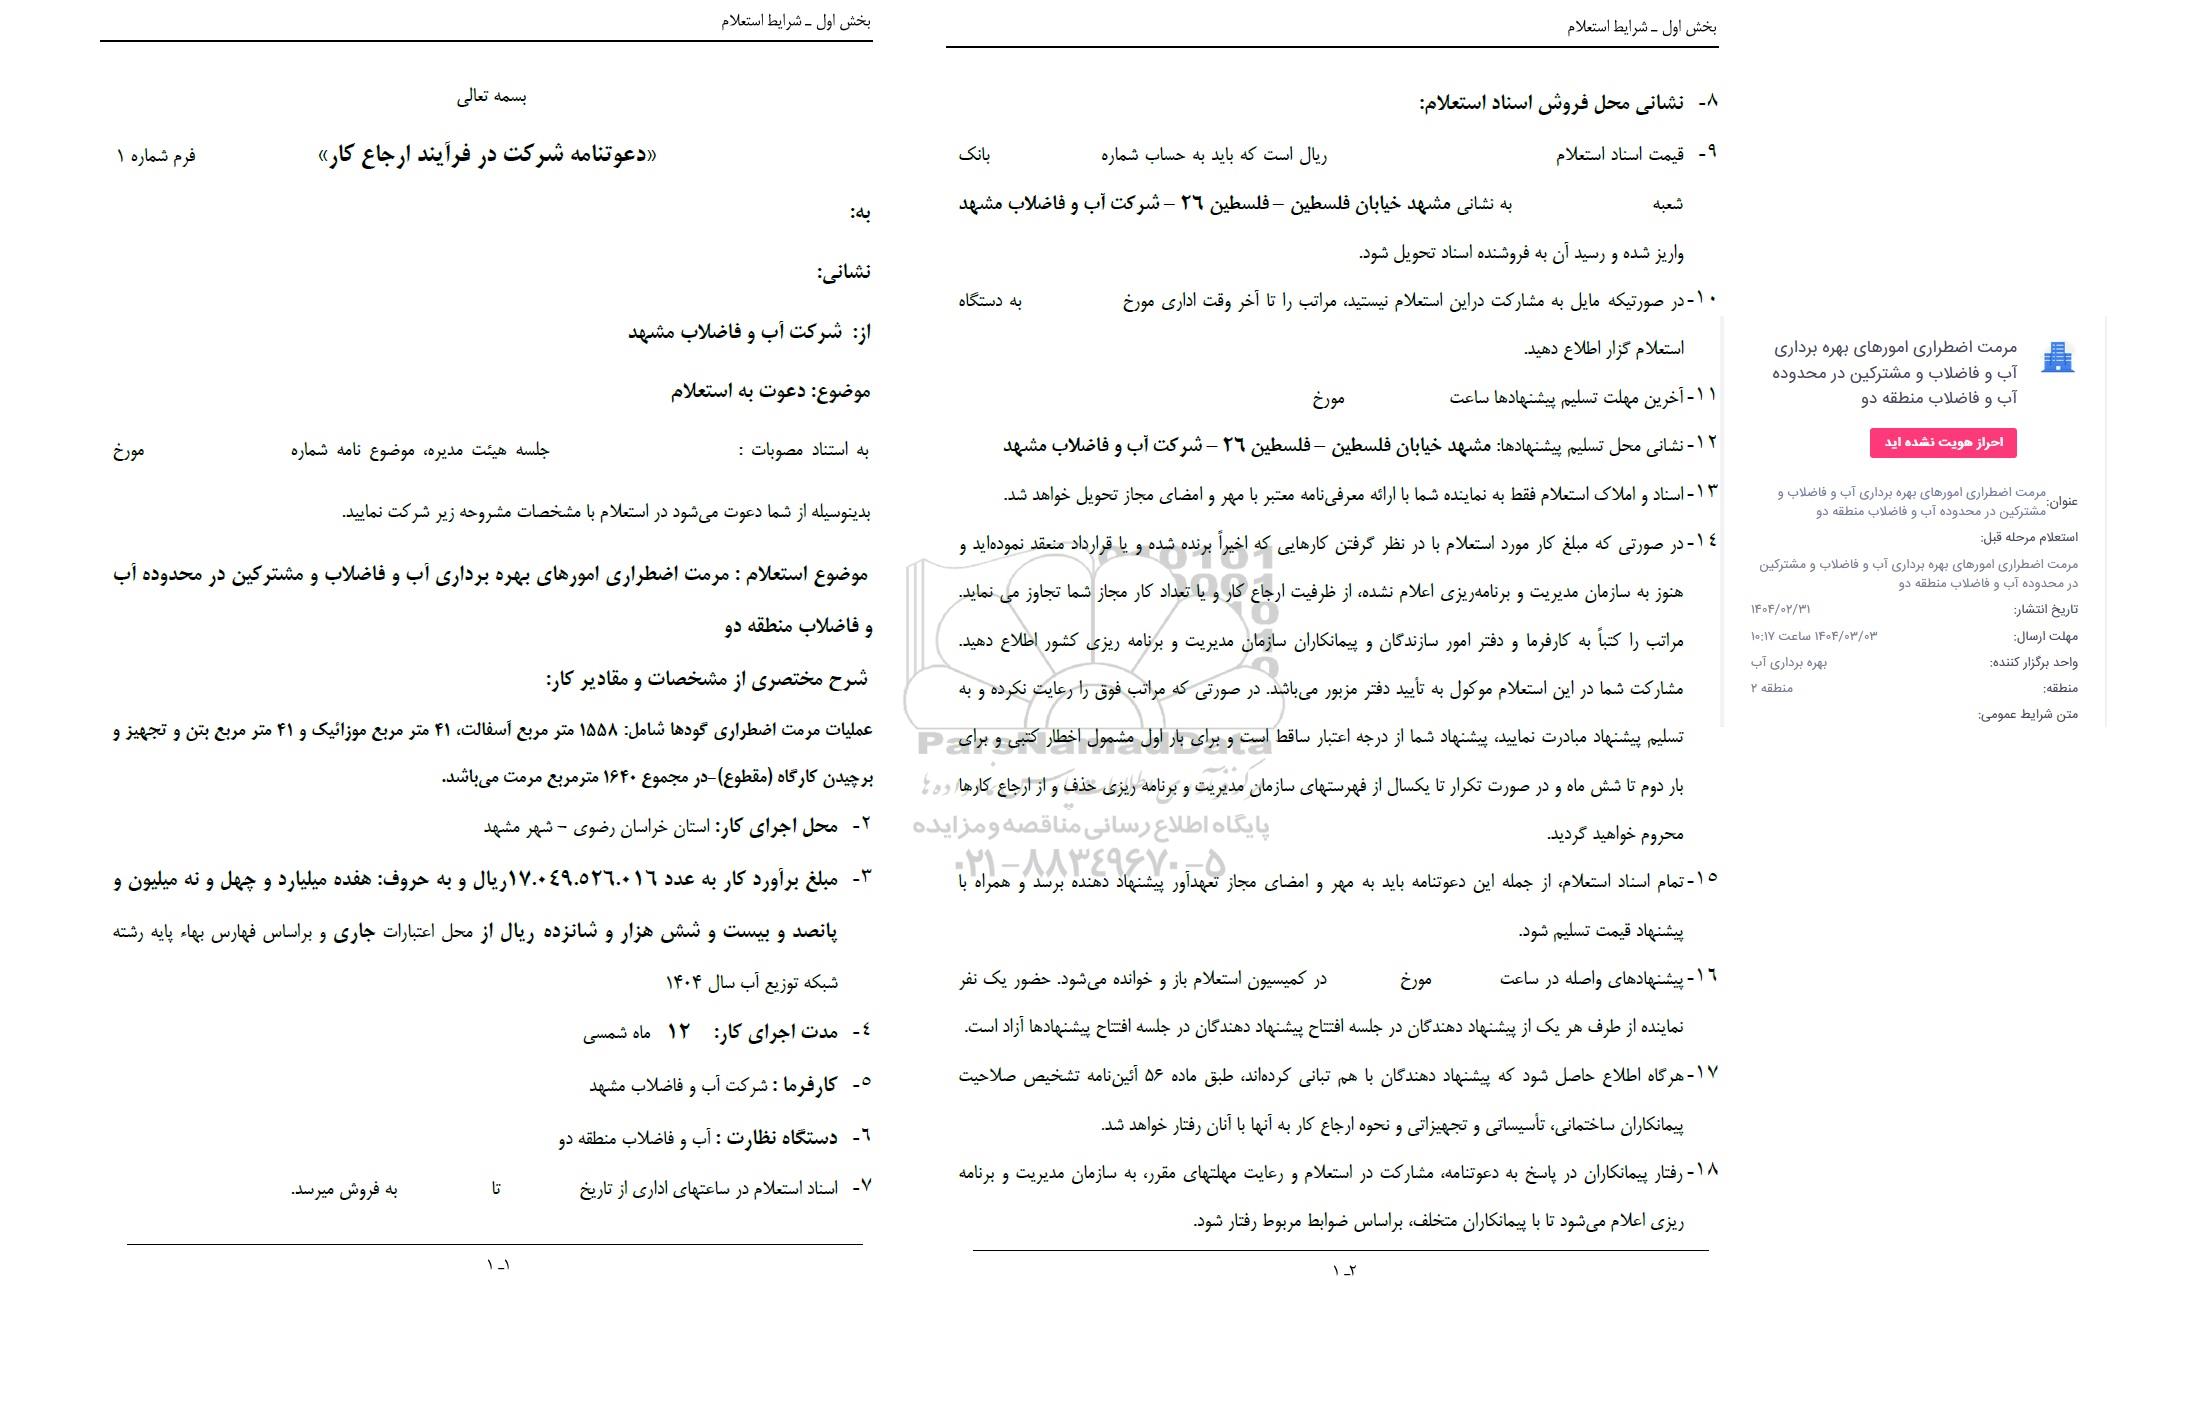 بخش اول ـ شرایط استعلام
بسمه تعالی
«دعوتنامه شرکت در فرآیند ارجاع کار»
فرم شماره ۱
به:
نشانی:
از: شرکت آب و فاضلاب مشهد
موضوع: دعوت به استعلام
به استناد مصوبات : جلسه هیئت مدیره، موضوع نامه شماره مورخ
بدینوسیله از شما دعوت می‌شود در استعلام با مشخصات مشروحه زیر شرکت نمایید.
موضوع استعلام : مرمت اضطراری امورهای بهره برداری آب و فاضلاب و مشترکین در محدوده آب
و فاضلاب منطقه دو
شرح مختصری از مشخصات و مقادیر کار:
عملیات مرمت اضطراری گودها شامل: ۱۵۵۸ متر مربع آسفالت، ۴۱ متر مربع موزائیک و ۴۱ متر مربع بتن و تجهیز و
برچیدن کارگاه (مقطوع)-در مجموع ۱۶۴۰ مترمربع مرمت می‌باشد.
۲- محل اجرای کار: استان خراسان رضوی – شهر مشهد
۳- مبلغ برآورد کار به عدد ۱۷.۰۴۹.۵۲۶.۰۱۶ریال و به حروف: هفده میلیارد و چهل و نه میلیون و
پانصد و بیست و شش هزار و شانزده ریال از محل اعتبارات جاری و براساس فهارس بهاء پایه رشته
شبکه توزیع آب سال ۱۴۰۴
۴- مدت اجرای کار: ۱۲ ماه شمسی
۵- کارفرما : شرکت آب و فاضلاب مشهد
۶- دستگاه نظارت : آب و فاضلاب منطقه دو
۷- اسناد استعلام در ساعتهای اداری از تاریخ تا به فروش میرسد.
۱ـ ۱
بخش اول ـ شرایط استعلام
۸- نشانی محل فروش اسناد استعلام:
۹- قیمت اسناد استعلام ریال است که باید به حساب شماره بانک
شعبه به نشانی مشهد خیابان فلسطین – فلسطین ۲۶ – شرکت آب و فاضلاب مشهد
واریز شده و رسید آن به فروشنده اسناد تحویل شود.
۱۰- در صورتیکه مایل به مشارکت دراین استعلام نیستید، مراتب را تا آخر وقت اداری مورخ به دستگاه
استعلام گزار اطلاع دهید.
۱۱- آخرین مهلت تسلیم پیشنهادها ساعت مورخ
۱۲- نشانی محل تسلیم پیشنهادها: مشهد خیابان فلسطین – فلسطین ۲۶ – شرکت آب و فاضلاب مشهد
۱۳- اسناد و املاک استعلام فقط به نماینده شما با ارائه معرفی‌نامه معتبر با مهر و امضای مجاز تحویل خواهد شد.
۱۴- در صورتی که مبلغ کار مورد استعلام با در نظر گرفتن کارهایی که اخیراً برنده شده و یا قرارداد منعقد نموده‌اید و
هنوز به سازمان مدیریت و برنامه‌ریزی اعلام نشده، از ظرفیت ارجاع کار و یا تعداد کار مجاز شما تجاوز می نماید.
مراتب را کتباً به کارفرما و دفتر امور سازندگان و پیمانکاران سازمان مدیریت و برنامه ریزی کشور اطلاع دهید.
مشارکت شما در این استعلام موکول به تأیید دفتر مزبور می‌باشد. در صورتی که مراتب فوق را رعایت نکرده و به
تسلیم پیشنهاد مبادرت نمایید، پیشنهاد شما از درجه اعتبار ساقط است و برای بار اول مشمول اخطار کتبی و برای
بار دوم تا شش ماه و در صورت تکرار تا یکسال از فهرستهای سازمان مدیریت و برنامه ریزی حذف و از ارجاع کارها
محروم خواهید گردید.
۱۵- تمام اسناد استعلام، از جمله این دعوتنامه باید به مهر و امضای مجاز تعهدآور پیشنهاد دهنده برسد و همراه با
پیشنهاد قیمت تسلیم شود.
۱۶- پیشنهادهای واصله در ساعت مورخ در کمیسیون استعلام باز و خوانده می‌شود. حضور یک نفر
نماینده از طرف هر یک از پیشنهاد دهندگان در جلسه افتتاح پیشنهاد دهندگان در جلسه افتتاح پیشنهادها آزاد است.
۱۷- هرگاه اطلاع حاصل شود که پیشنهاد دهندگان با هم تبانی کرده‌اند، طبق ماده ۵۶ آئین‌نامه تشخیص صلاحیت
پیمانکاران ساختمانی، تأسیساتی و تجهیزاتی و نحوه ارجاع کار به آنها با آنان رفتار خواهد شد.
۱۸- رفتار پیمانکاران در پاسخ به دعوتنامه، مشارکت در استعلام و رعایت مهلتهای مقرر، به سازمان مدیریت و برنامه
ریزی اعلام می‌شود تا با پیمانکاران متخلف، براساس ضوابط مربوط رفتار شود.
۲ـ ۱
مرمت اضطراری امورهای بهره برداری
آب و فاضلاب و مشترکین در محدوده
آب و فاضلاب منطقه دو
احراز هویت نشده اید
عنوان: مرمت اضطراری امورهای بهره برداری آب و فاضلاب و
مشترکین در محدوده آب و فاضلاب منطقه دو
استعلام مرحله قبل:
مرمت اضطراری امورهای بهره برداری آب و فاضلاب و مشترکین
در محدوده آب و فاضلاب منطقه دو
تاریخ انتشار: ۱۴۰۴/۰۲/۳۱
مهلت ارسال: ۱۴۰۴/۰۳/۰۳ ساعت ۱۰:۱۷
واحد برگزار کننده: بهره برداری آب
منطقه: منطقه ۲
متن شرایط عمومی:
ParsNamadData
پایگاه اطلاع رسانی مناقصه و مزایده
۰۲۱-۸۸۳۴۹۶۷۰-۵